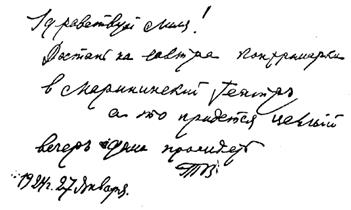 Здравствуй Миля!
Достань на завтра контрамарки
в Мариинский Театръ
а то придется целый
вечеръ дома просидеть
ТВ.
1924г. 27 Января.